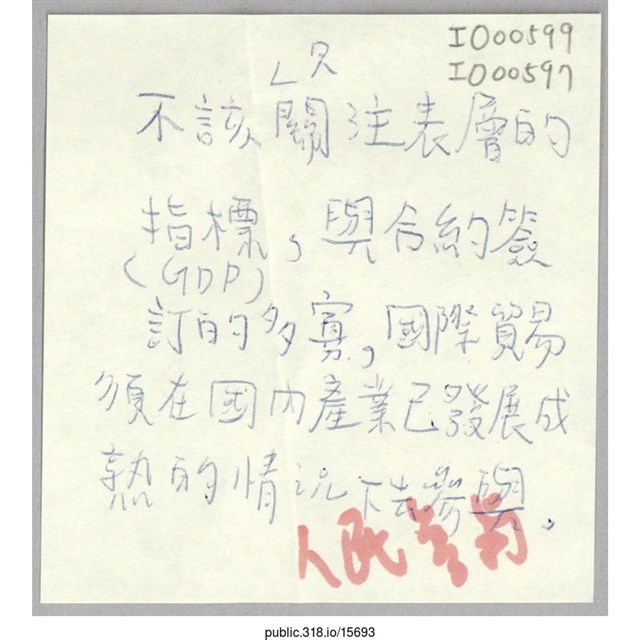 IO00599
IO00597
只
不該關注表層的
指標，與合約簽
(GDP)
訂的多寡，國際貿易
須在國內產業已發展成
熟的情況下去參與。
人民
public.318.io/15693